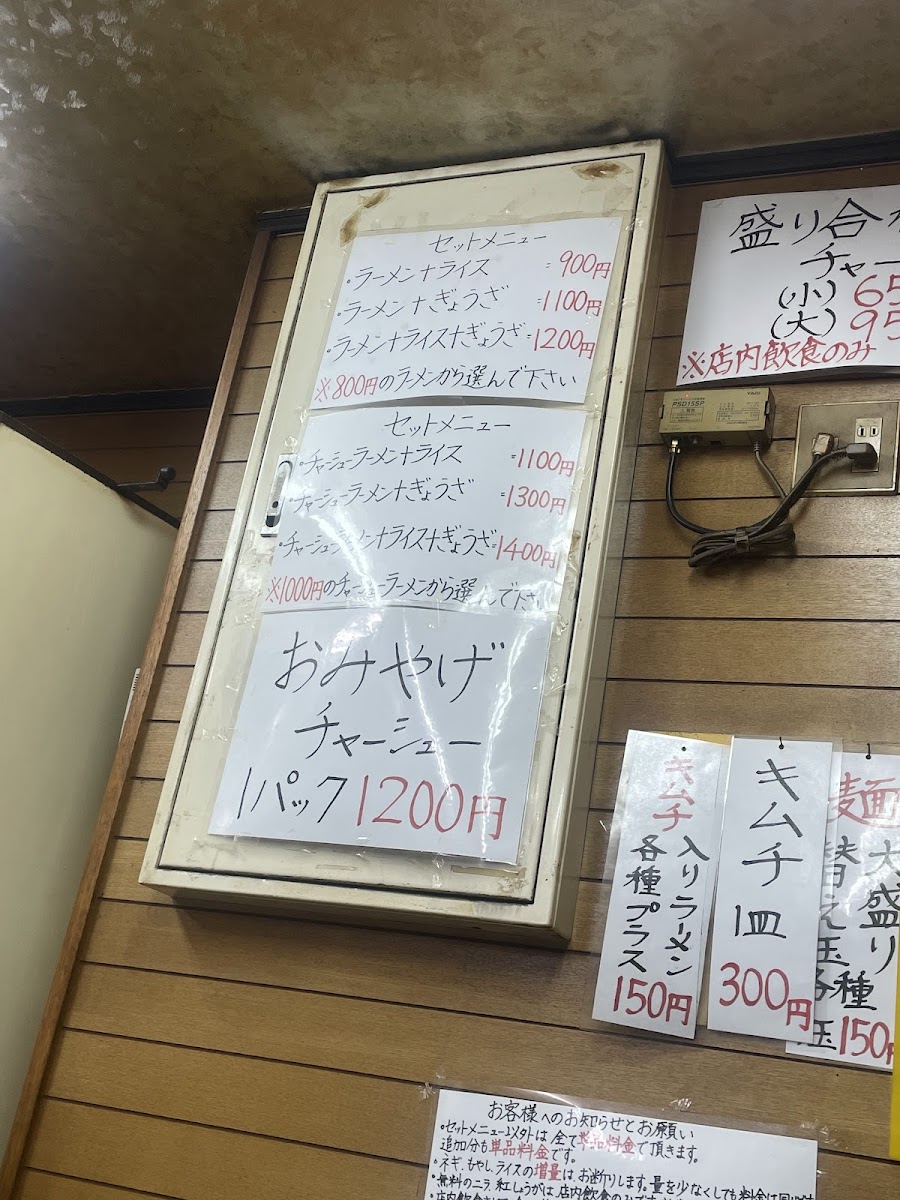 セットメニュー
・ラーメン+ライス =900円
・ラーメン+ぎょうざ =1100円
・ラーメン+ライス+ぎょうざ=1200円
※800円のラーメンから選んで下さい
セットメニュー
・チャーシューラーメン+ライス =1100円
・チャーシューラーメン+ぎょうざ =1300円
・チャーシューラーメン+ライス+ぎょうざ=1400円
※1000円のチャーシューラーメンから選んで下さい
おみやげ
チャーシュー
1パック1200円
盛り合
チャー
(小)65
(大)95
※店内飲食のみ
PSD15SP
キムチ
入りラーメン
各種プラス
150円
キムチ
1皿
300円
麺
大盛り
替え玉各種
玉150円
お客様へのお知らせとお願い
・セットメニュー以外は全て単品料金で頂きます。
追加分も単品料金です。
・ネギ、もやし、ライスの増量は、お断りします。量を少なくしても料金は同
・無料のニラ、紅しょうがは、店内飲食のみ